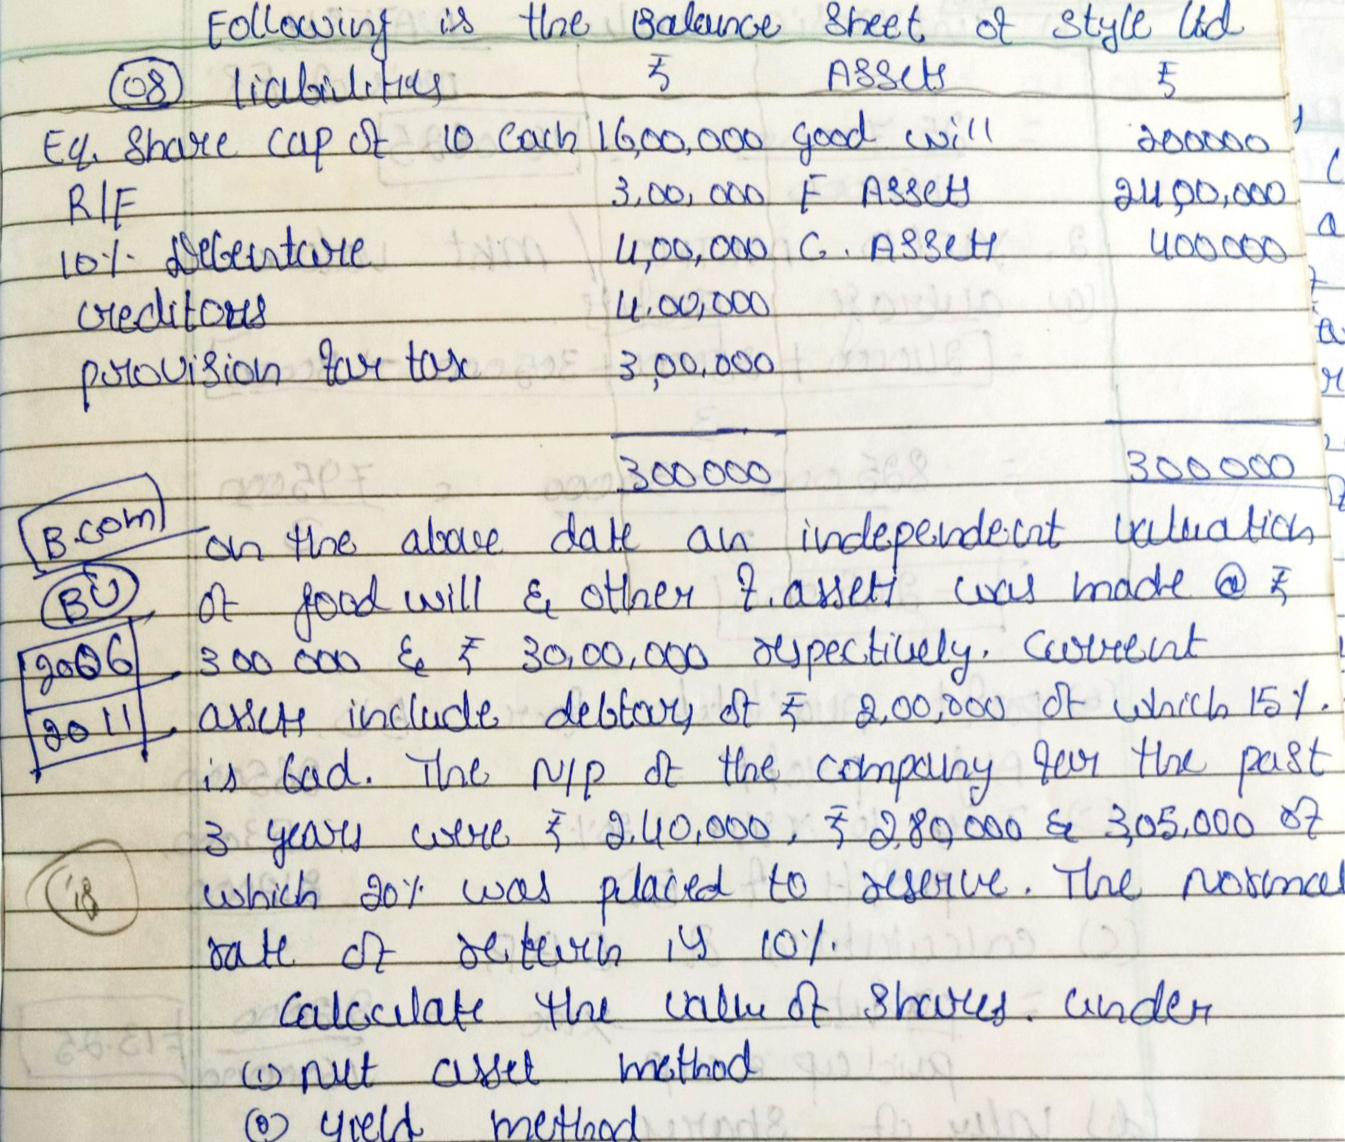 Following is the Balance Sheet of Style Ltd
08 liabilities ₹ Assets ₹
Eq. Share cap of 10 each 16,00,000 good will 200000
R/F 3,00,000 F Assets 24,00,000
10% Debenture 4,00,000 C. Assets 400000
creditors 4,00,000
provision for tax 3,00,000
300000 300000
B.com on the above date an independent valuation
BU of good will & other f.assets was made @ ₹
2006 300 000 & ₹ 30,00,000 respectively. Current
2011 assets include debtors of ₹ 2,00,000 of which 15%.
is bad. The N/P of the company for the past
3 years were ₹ 2,40,000, ₹ 280,000 & 3,05,000 of
'18 which 20% was placed to reserve. The normal
rate of return is 10%.
Calculate the value of Shares. under
(1) net asset method
(2) yield method